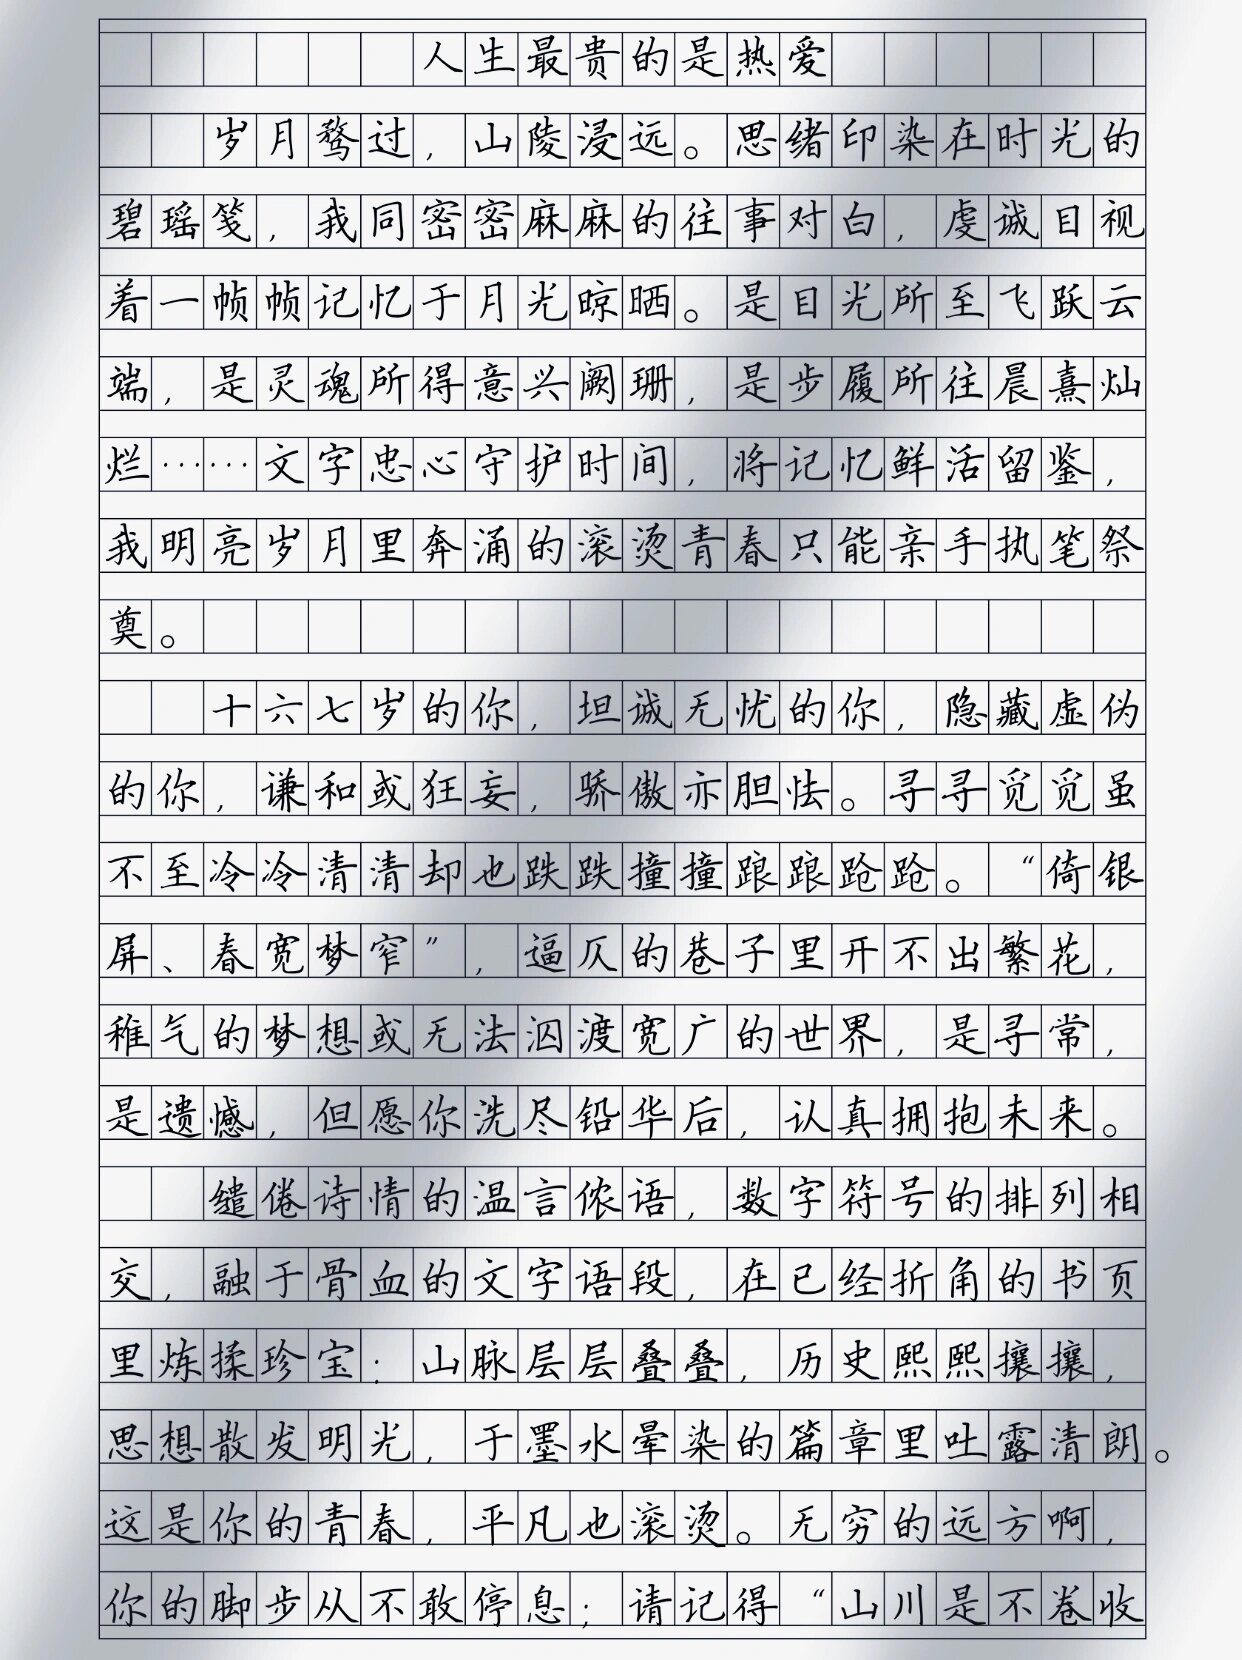 人生最贵的是热爱
岁月骛过，山陵浸远。思绪印染在时光的
碧瑶笺，我同密密麻麻的往事对白，虔诚目视
着一帧帧记忆于月光晾晒。是目光所至飞跃云
端，是灵魂所得意兴阙珊，是步履所往晨熹灿
烂……文字忠心守护时间，将记忆鲜活留鉴，
我明亮岁月里奔涌的滚烫青春只能亲手执笔祭
奠。
十六七岁的你，坦诚无忧的你，隐藏虚伪
的你，谦和或狂妄，骄傲亦胆怯。寻寻觅觅虽
不至冷冷清清却也跌跌撞撞踉踉跄跄。“倚银
屏、春宽梦窄”，逼仄的巷子里开不出繁花，
稚气的梦想或无法泅渡宽广的世界，是寻常，
是遗憾，但愿你洗尽铅华后，认真拥抱未来。
缱倦诗情的温言侬语，数字符号的排列相
交，融于骨血的文字语段，在已经折角的书页
里炼揉珍宝：山脉层层叠叠，历史熙熙攘攘，
思想散发明光，于墨水晕染的篇章里吐露清朗。
这是你的青春，平凡也滚烫。无穷的远方啊，
你的脚步从不敢停息；请记得“山川是不卷收